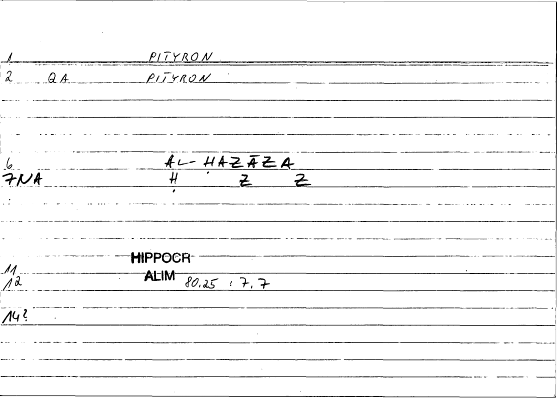 1 PĪTYRON
2 QA PĪTYRON
6 AL-ḤAZĀZA
7NA Ḥ Z Z
11 HIPPOCR
12 ALIM 80.25 : 7.7
14?